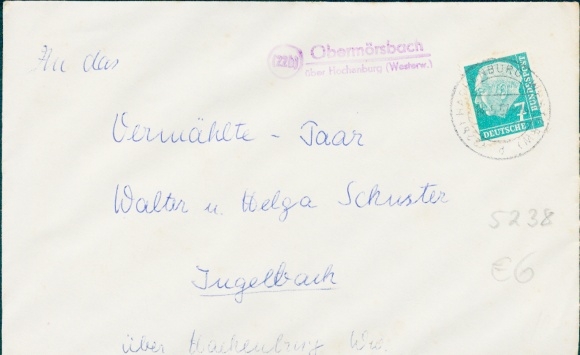 (22b)
Obermörsbach
über Hachenburg (Westerw.)
An das
7
DEUTSCHE
BUNDESPOST
Vermählte - Paar
Walter u. Helga Schuster
5238
Ingelbach
€6
über Hachenburg Ww.